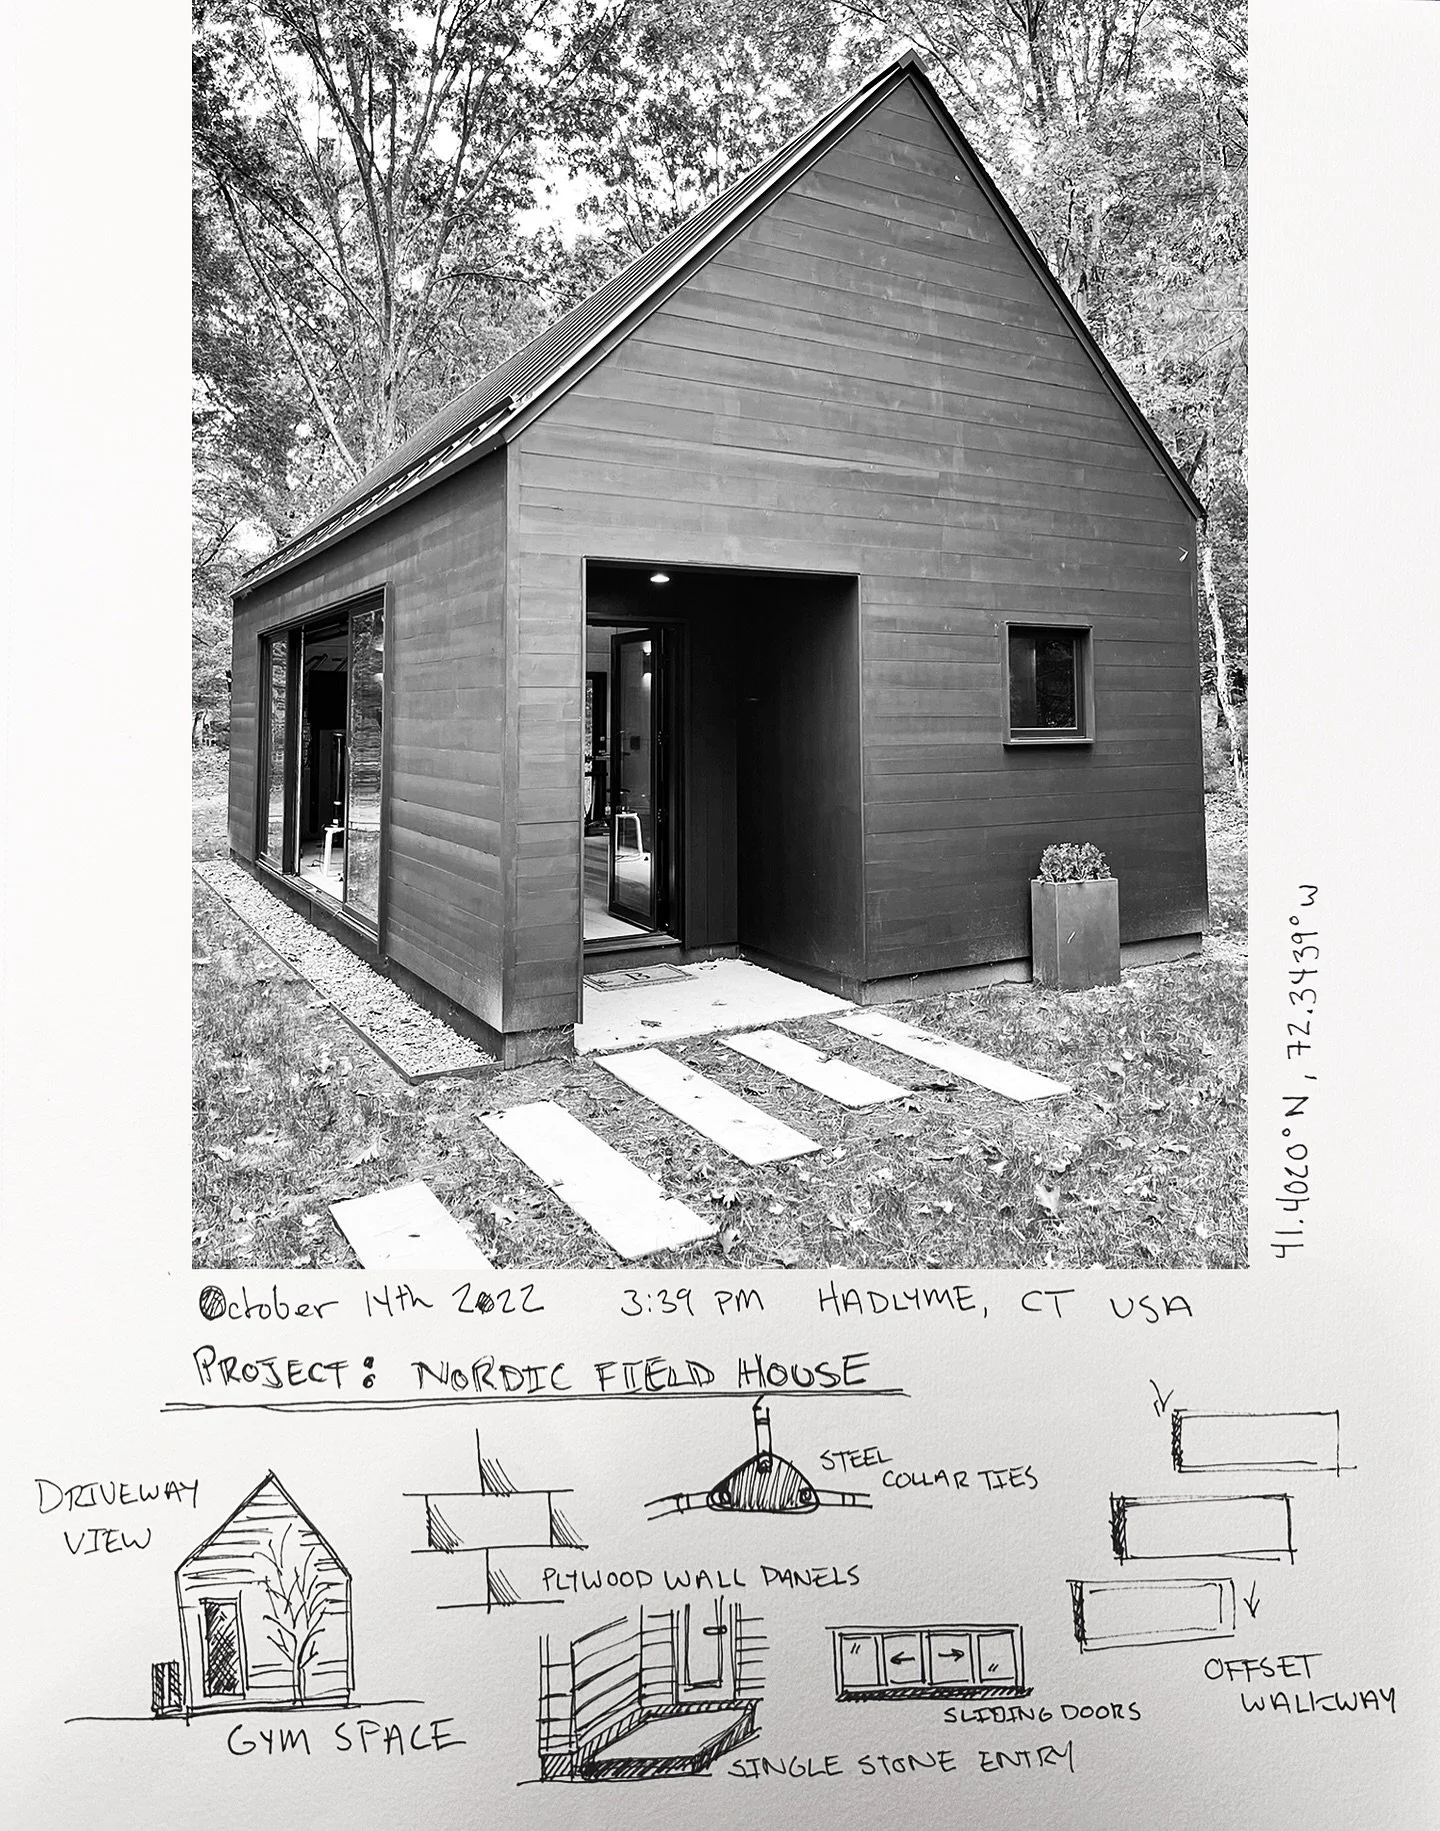 B
41.4020° N, 72.3439° W
October 14th 2022 3:39 PM HADLYME, CT USA
PROJECT: NORDIC FIELD HOUSE
DRIVEWAY
VIEW
STEEL
COLLAR TIES
PLYWOOD WALL PANELS
OFFSET
WALKWAY
SLIDING DOORS
GYM SPACE
SINGLE STONE ENTRY